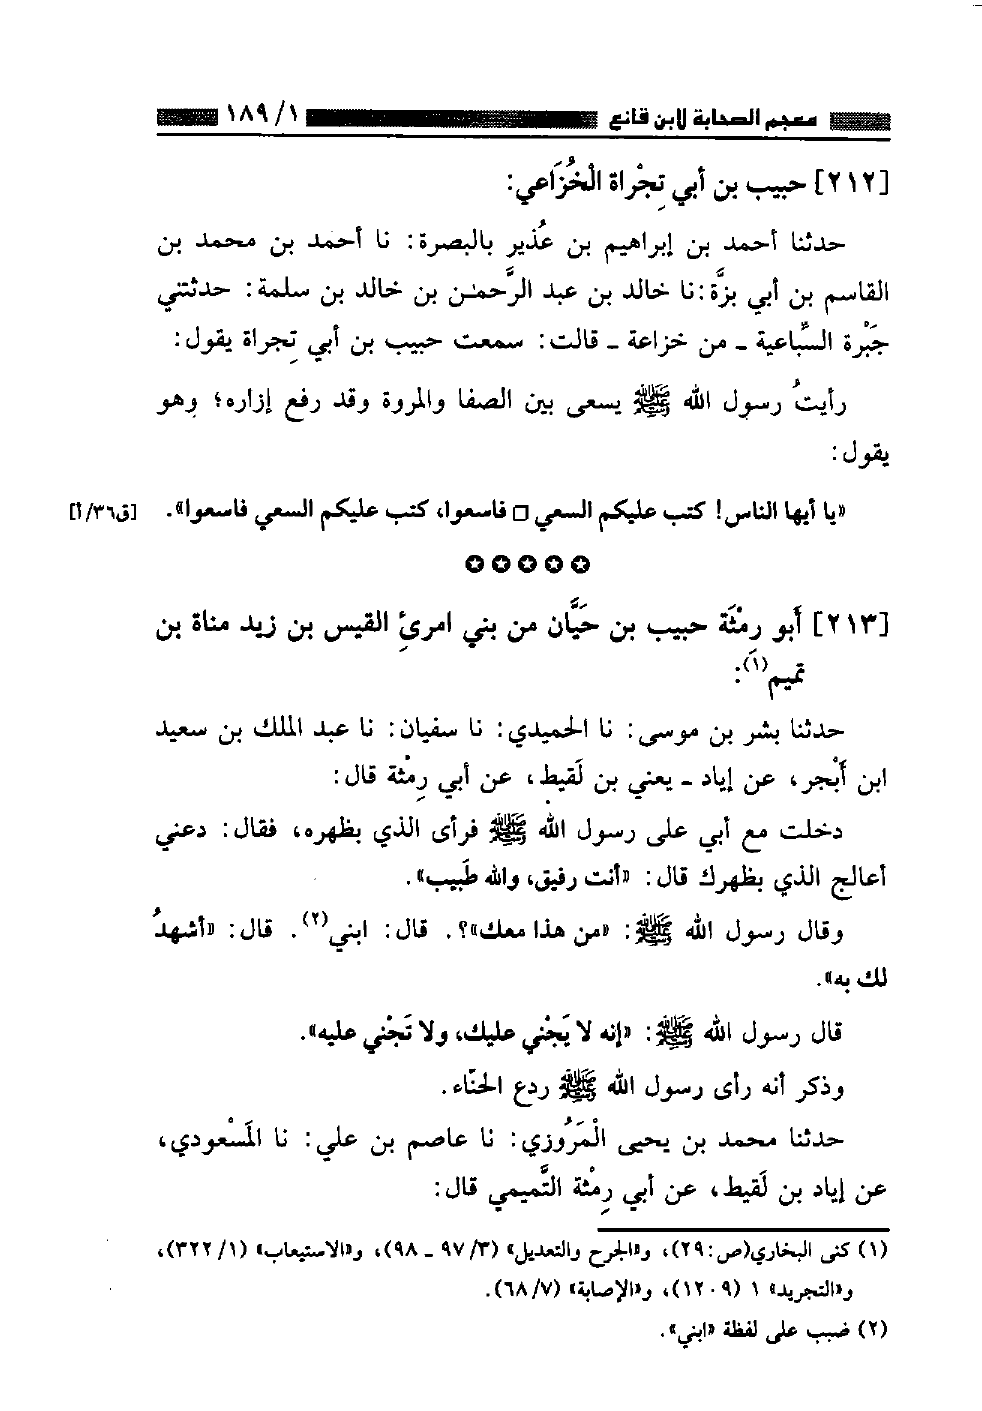 معجم الصحابة لابن قانع ١/ ١٨٩
[٢١٢] حبيب بن أبي تِجْراة الْخُزَاعي:
حدثنا أحمد بن إبراهيم بن عُذير بالبصرة: نا أحمد بن محمد بن
القاسم بن أبي بزَّة: نا خالد بن عبد الرَّحمٰن بن خالد بن سلمة: حدثتني
جَبْرة السِّباعية ـ من خزاعة ـ قالت: سمعت حبيب بن أبي تِجراة يقول:
رأيتُ رسول الله ﷺ يسعى بين الصفا والمروة وقد رفع إزاره؛ وهو
يقول:
«يا أيها الناس! كتب عليكم السعي □ فاسعوا، كتب عليكم السعي فاسعوا». [ق٣٦/أ]
✪ ✪ ✪ ✪ ✪
[٢١٣] أَبو رِمْثَة حبيب بن حَيَّان من بني امرئِ القيس بن زيد مناة بن
تميم(١):
حدثنا بشر بن موسى: نا الحميدي: نا سفيان: نا عبد الملك بن سعيد
ابن أَبْجر، عن إياد ـ يعني بن لَقيط، عن أبي رِمْثة قال:
دخلت مع أبي على رسول الله ﷺ فرأى الذي بظهره، فقال: دعني
أعالج الذي بظهرك قال: «أنت رفيق، والله طَبيب».
وقال رسول الله ﷺ: «من هذا معك»؟. قال: ابني(٢). قال: «أشهدُ
لك به».
قال رسول الله ﷺ: «إنه لا يَجْني عليك، ولا تَجْني عليه».
وذكر أنه رأى رسول الله ﷺ ردع الحنّاء.
حدثنا محمد بن يحيى الْمَرْوُزي: نا عاصم بن علي: نا المَسْعودي،
عن إياد بن لَقيط، عن أبي رِمْثة التَّميمي قال:
(١) كنى البخاري(ص:٢٩)، و«الجرح والتعديل» (٣/ ٩٧ ـ ٩٨)، و«الاستيعاب» (١/ ٣٢٢)،
و«التجريد» ١ (١٢٠٩)، و«الإصابة» (٧/ ٦٨).
(٢) ضبب على لفظة «ابني».